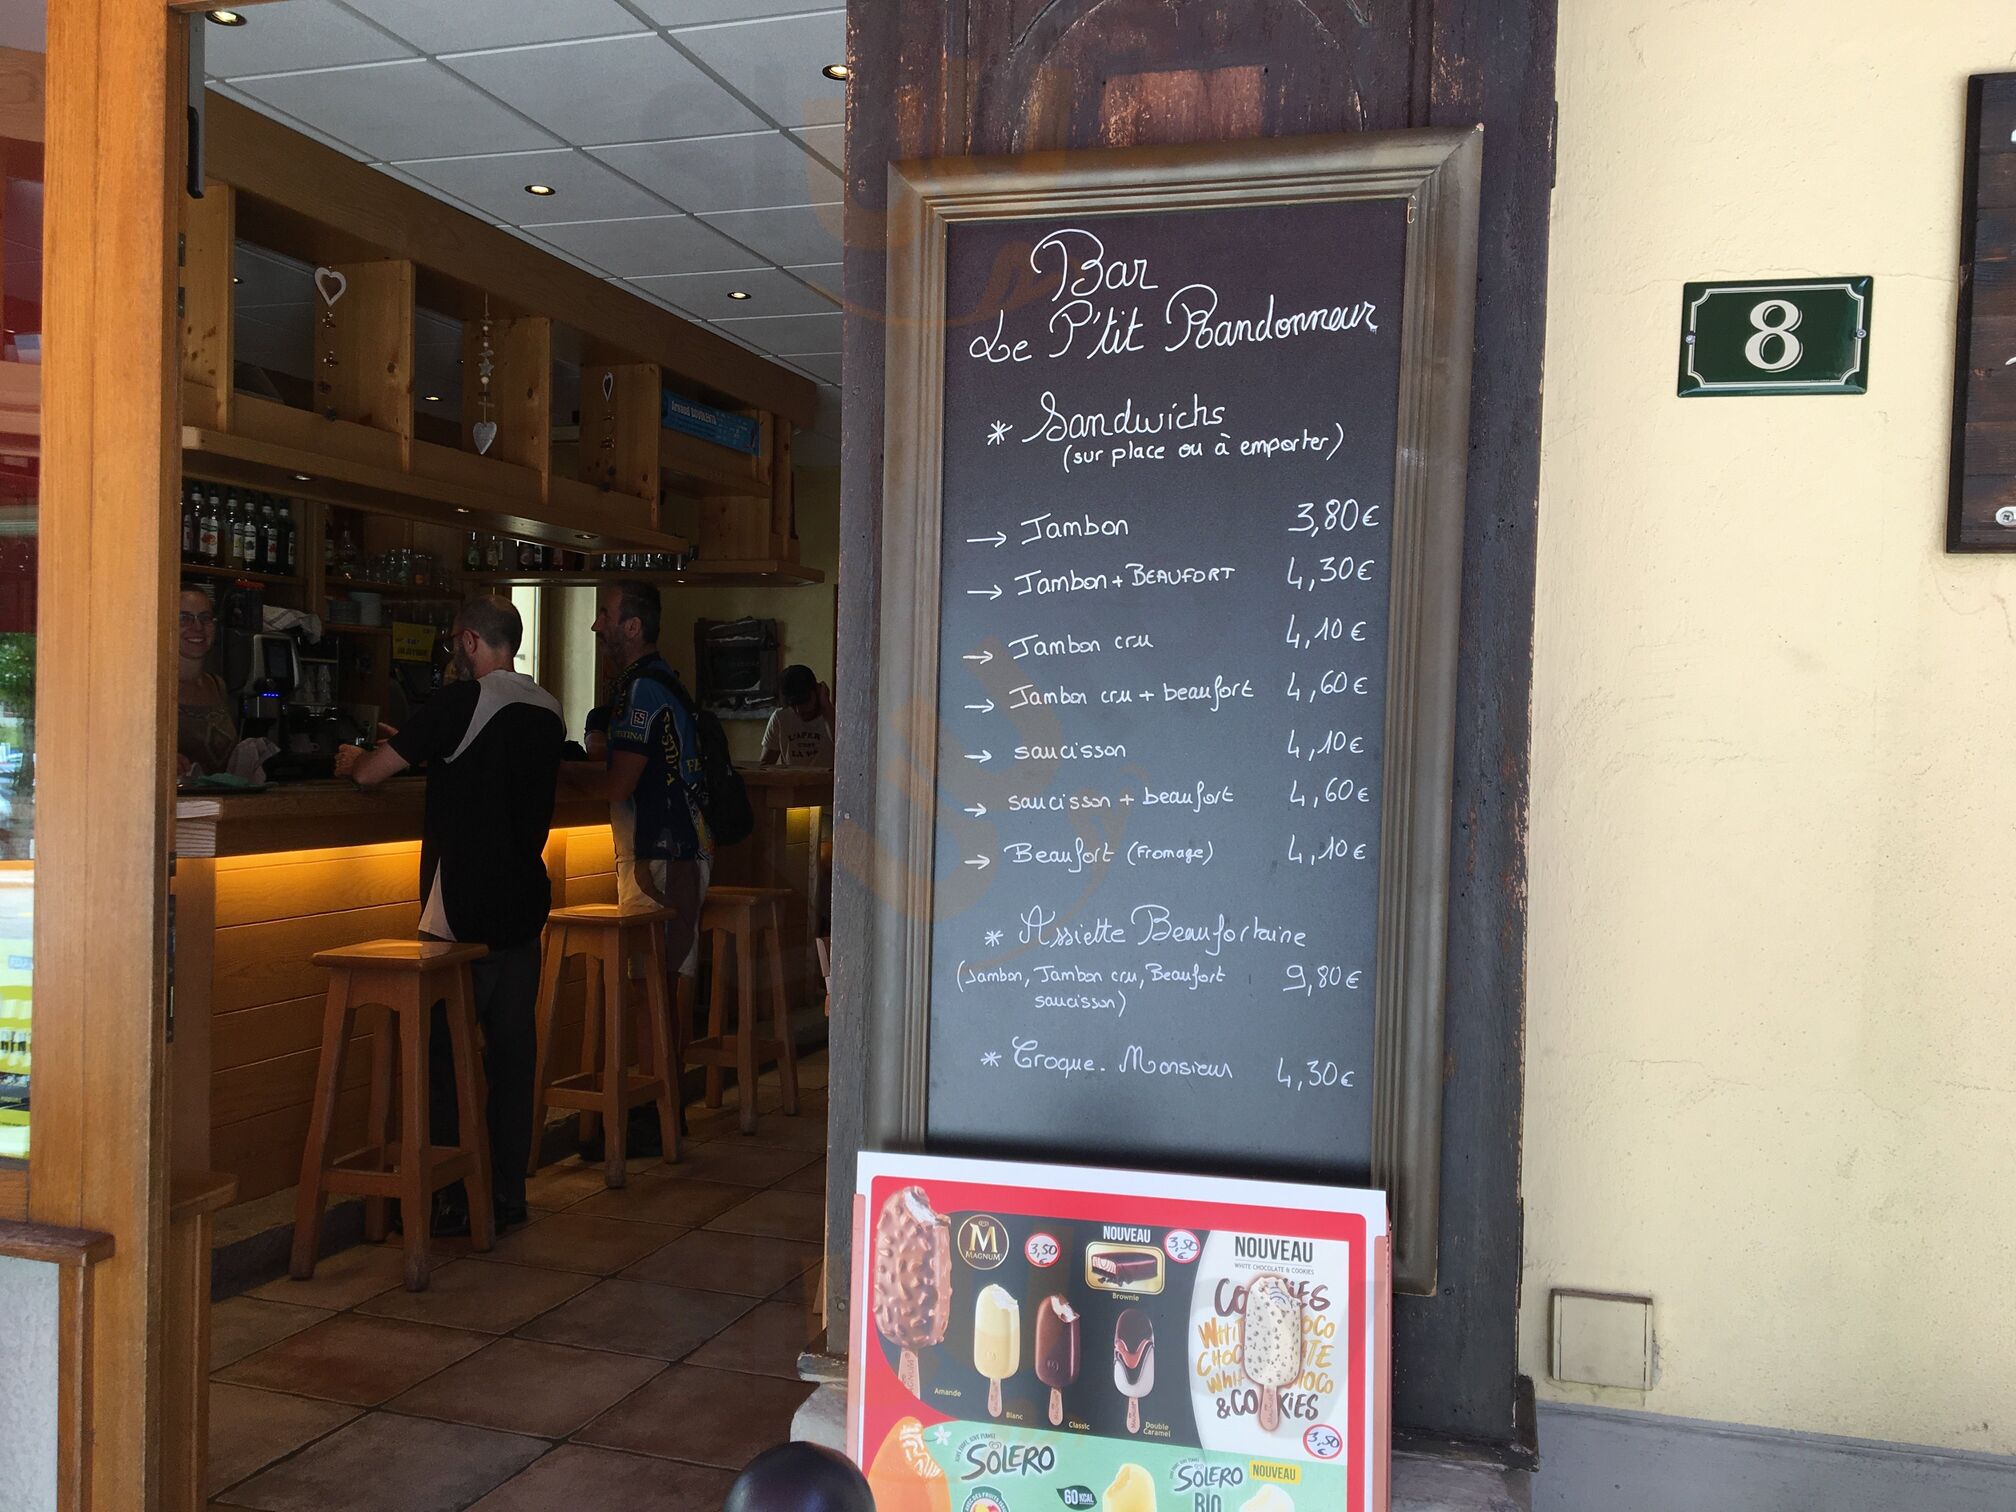 Bar
Le P'tit Randonneur
* Sandwichs
(sur place ou à emporter)
→ Jambon 3,80€
→ Jambon + BEAUFORT 4,30€
→ Jambon cru 4,10€
→ Jambon cru + beaufort 4,60€
→ saucisson 4,10€
→ saucisson + beaufort 4,60€
→ Beaufort (Fromage) 4,10€
* Assiette Beaufortaine
(Jambon, Jambon cru, Beaufort 9,80€
saucisson)
* Croque-Monsieur 4,30€
8
M
MAGNUM
3,50
€
NOUVEAU
3,50
€
Brownie
NOUVEAU
WHITE CHOCOLATE & COOKIES
Amande
Blanc
Classic
Double
Caramel
&COOKIES
3,50
€
SOLERO
60 KCAL
SOLERO
NOUVEAU
BIO